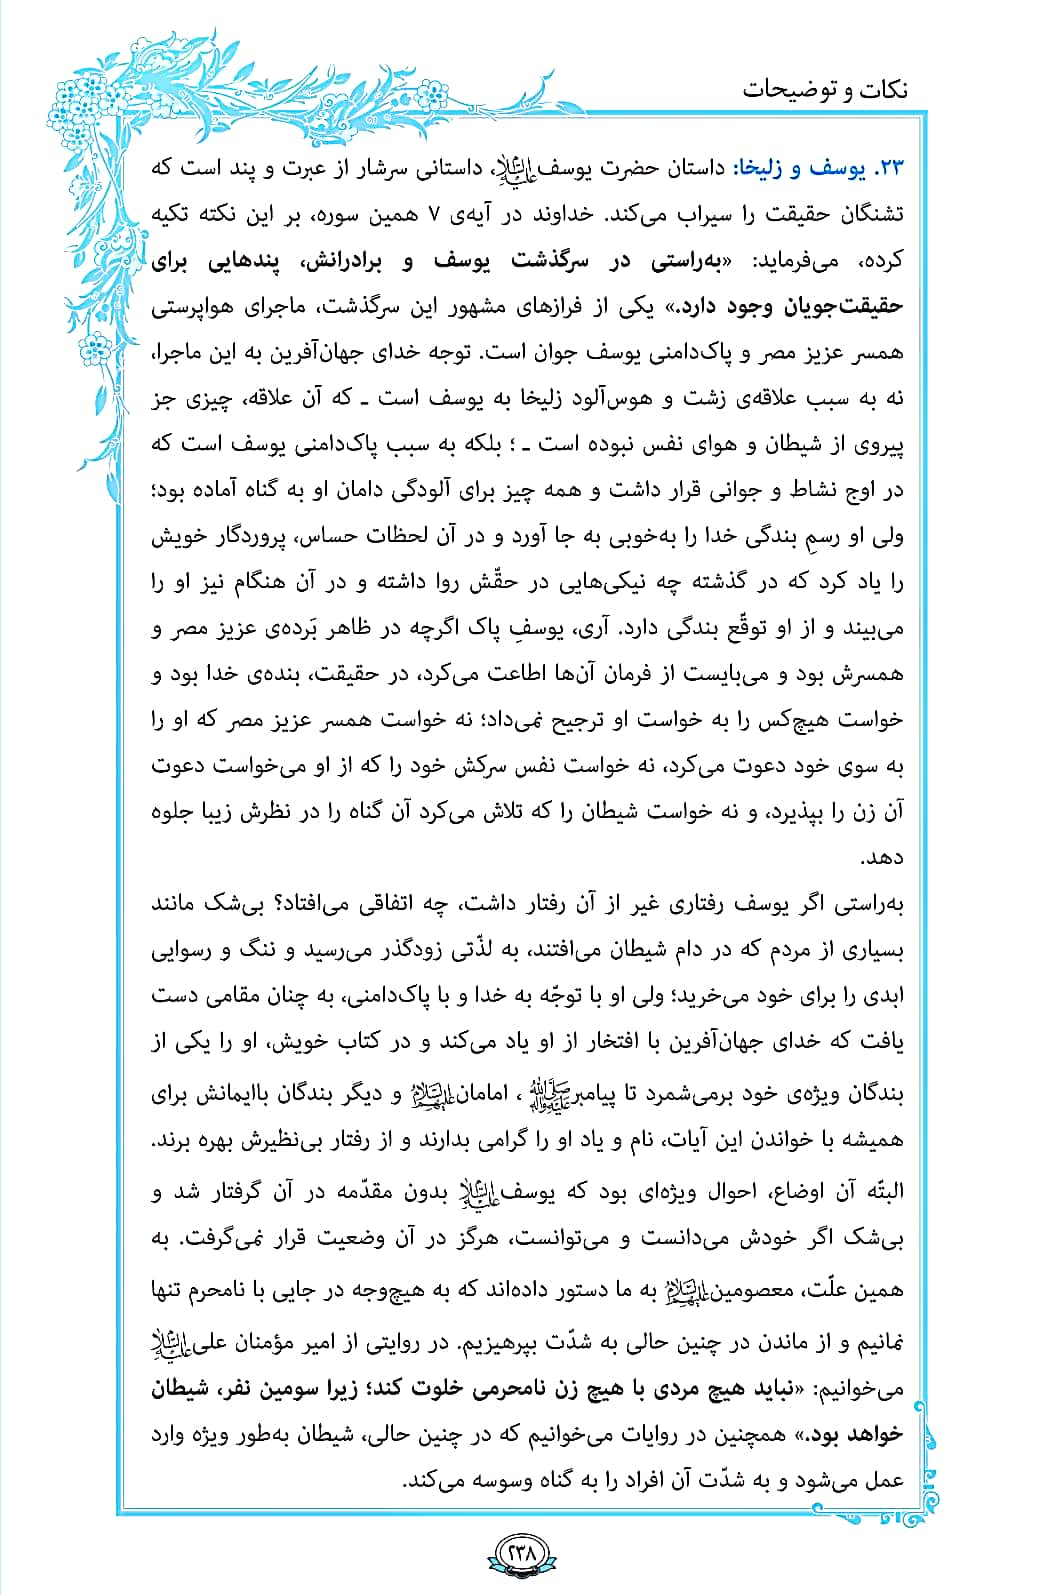 نکات و توضیحات
۲۳. یوسف و زلیخا: داستان حضرت یوسف علیه‌السلام، داستانی سرشار از عبرت و پند است که
تشنگان حقیقت را سیراب می‌کند. خداوند در آیه‌ی ۷ همین سوره، بر این نکته تکیه
کرده، می‌فرماید: «به‌راستی در سرگذشت یوسف و برادرانش، پندهایی برای
حقیقت‌جویان وجود دارد.» یکی از فرازهای مشهور این سرگذشت، ماجرای هواپرستی
همسر عزیز مصر و پاک‌دامنی یوسف جوان است. توجه خدای جهان‌آفرین به این ماجرا،
نه به سبب علاقه‌ی زشت و هوس‌آلود زلیخا به یوسف است ـ که آن علاقه، چیزی جز
پیروی از شیطان و هوای نفس نبوده است ـ ؛ بلکه به سبب پاک‌دامنی یوسف است که
در اوج نشاط و جوانی قرار داشت و همه چیز برای آلودگی دامان او به گناه آماده بود؛
ولی او رسمِ بندگی خدا را به‌خوبی به جا آورد و در آن لحظات حساس، پروردگار خویش
را یاد کرد که در گذشته چه نیکی‌هایی در حقّش روا داشته و در آن هنگام نیز او را
می‌بیند و از او توقّع بندگی دارد. آری، یوسفِ پاک اگرچه در ظاهر بَرده‌ی عزیز مصر و
همسرش بود و می‌بایست از فرمان آن‌ها اطاعت می‌کرد، در حقیقت، بنده‌ی خدا بود و
خواست هیچ‌کس را به خواست او ترجیح نمی‌داد؛ نه خواست همسر عزیز مصر که او را
به سوی خود دعوت می‌کرد، نه خواست نفس سرکش خود را که از او می‌خواست دعوت
آن زن را بپذیرد، و نه خواست شیطان را که تلاش می‌کرد آن گناه را در نظرش زیبا جلوه
دهد.
به‌راستی اگر یوسف رفتاری غیر از آن رفتار داشت، چه اتفاقی می‌افتاد؟ بی‌شک مانند
بسیاری از مردم که در دام شیطان می‌افتند، به لذّتی زودگذر می‌رسید و ننگ و رسوایی
ابدی را برای خود می‌خرید؛ ولی او با توجّه به خدا و با پاک‌دامنی، به چنان مقامی دست
یافت که خدای جهان‌آفرین با افتخار از او یاد می‌کند و در کتاب خویش، او را یکی از
بندگان ویژه‌ی خود برمی‌شمرد تا پیامبر صلی‌الله‌علیه‌وآله ، امامان علیهم‌السلام و دیگر بندگان باایمانش برای
همیشه با خواندن این آیات، نام و یاد او را گرامی بدارند و از رفتار بی‌نظیرش بهره برند.
البتّه آن اوضاع، احوال ویژه‌ای بود که یوسف علیه‌السلام بدون مقدّمه در آن گرفتار شد و
بی‌شک اگر خودش می‌دانست و می‌توانست، هرگز در آن وضعیت قرار نمی‌گرفت. به
همین علّت، معصومین علیهم‌السلام به ما دستور داده‌اند که به هیچ‌وجه در جایی با نامحرم تنها
نمانیم و از ماندن در چنین حالی به شدّت بپرهیزیم. در روایتی از امیر مؤمنان علی علیه‌السلام
می‌خوانیم: «نباید هیچ مردی با هیچ زن نامحرمی خلوت کند؛ زیرا سومین نفر، شیطان
خواهد بود.» همچنین در روایات می‌خوانیم که در چنین حالی، شیطان به‌طور ویژه وارد
عمل می‌شود و به شدّت آن افراد را به گناه وسوسه می‌کند.
۲۳۸